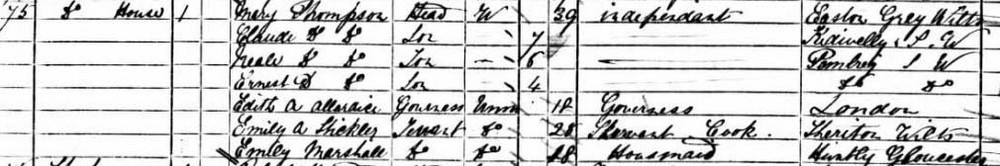 75 do House 1 Mary Thompson Head W 39 independant Easton Grey Wilts
Claude D do Son 7 Kidwelly S. W
Neale D do Son 6 Pembrey S W
Ernest D do Son 4 do do
Edith A allardice Governess Unm 18 Governess London
Emily A Stickler Servant do 28 Servant Cook. Sheriton Wilts
Emily Marshall do do 28 Housmaid Huntly Gloucester